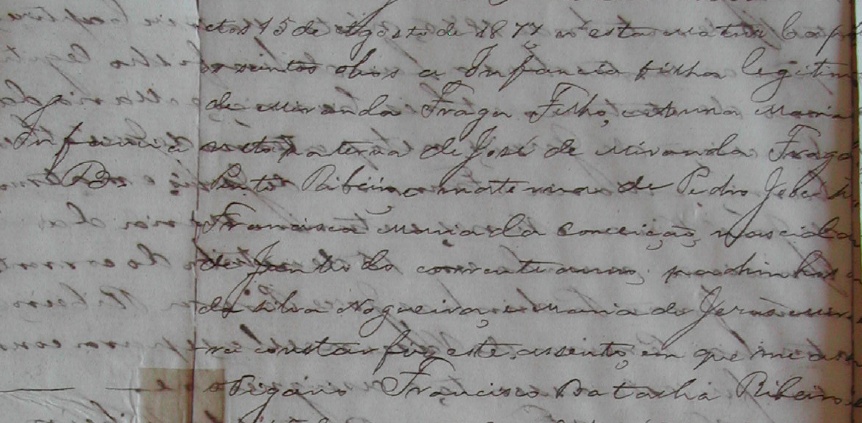 ctos 15 de Agosto de 1877 n'esta matriz bapt
os santos olios a Infancia filha legitim
de Miranda Fraga Filho, e Anna Maria
Infancia neta paterna de José de Miranda Fraga
Bento Ribeiro, materna de Pedro José
Francisca Maria da Conceição, nascida
de Junho do corrente anno; padrinhos
da Silva Nogueira, e Maria de Jesus
ra constar fiz este assento, em que me a
o Vigario Francisco Batalha Ribeiro